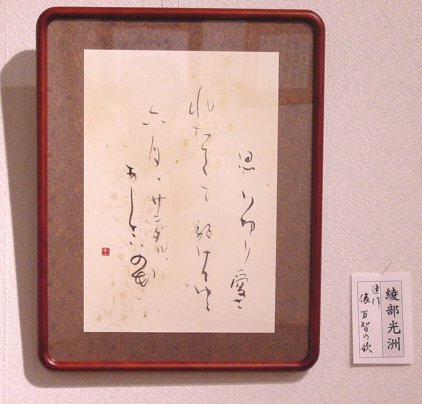 思いきり愛さ
れたくて駆けてゆく
六月、サンダル、
あじさいの花
綾部光洲
俵万智の歌